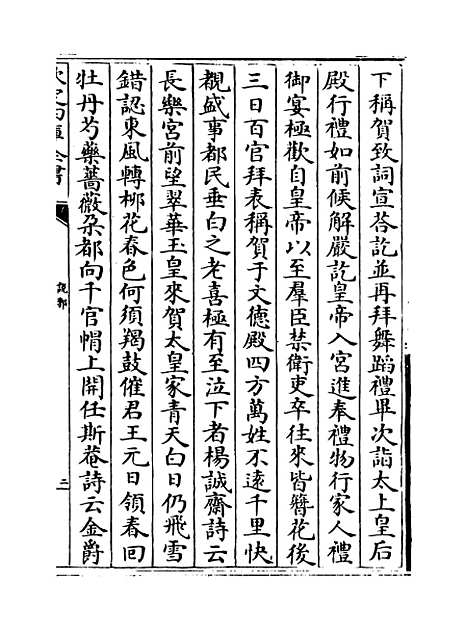 下稱賀致詞宣荅訖並再拜舞蹈禮畢次詣太上皇后
殿行禮如前候解嚴訖皇帝入宮進奉禮物行家人禮
御宴極歡自皇帝以至羣臣禁衛吏卒往來皆簪花後
三日百官拜表稱賀于文德殿四方萬姓不逺千里快
覩盛事都民垂白之老喜極有至泣下者楊誠齋詩云
長樂宮前望翠華玉皇來賀太皇家青天白日仍飛雪
錯認東風轉栁花春色何須羯鼓催君王元日領春回
牡丹芍藥薔薇朶都向千官㡌上開任斯菴詩云金爵
欽定四庫全書
說郛
二